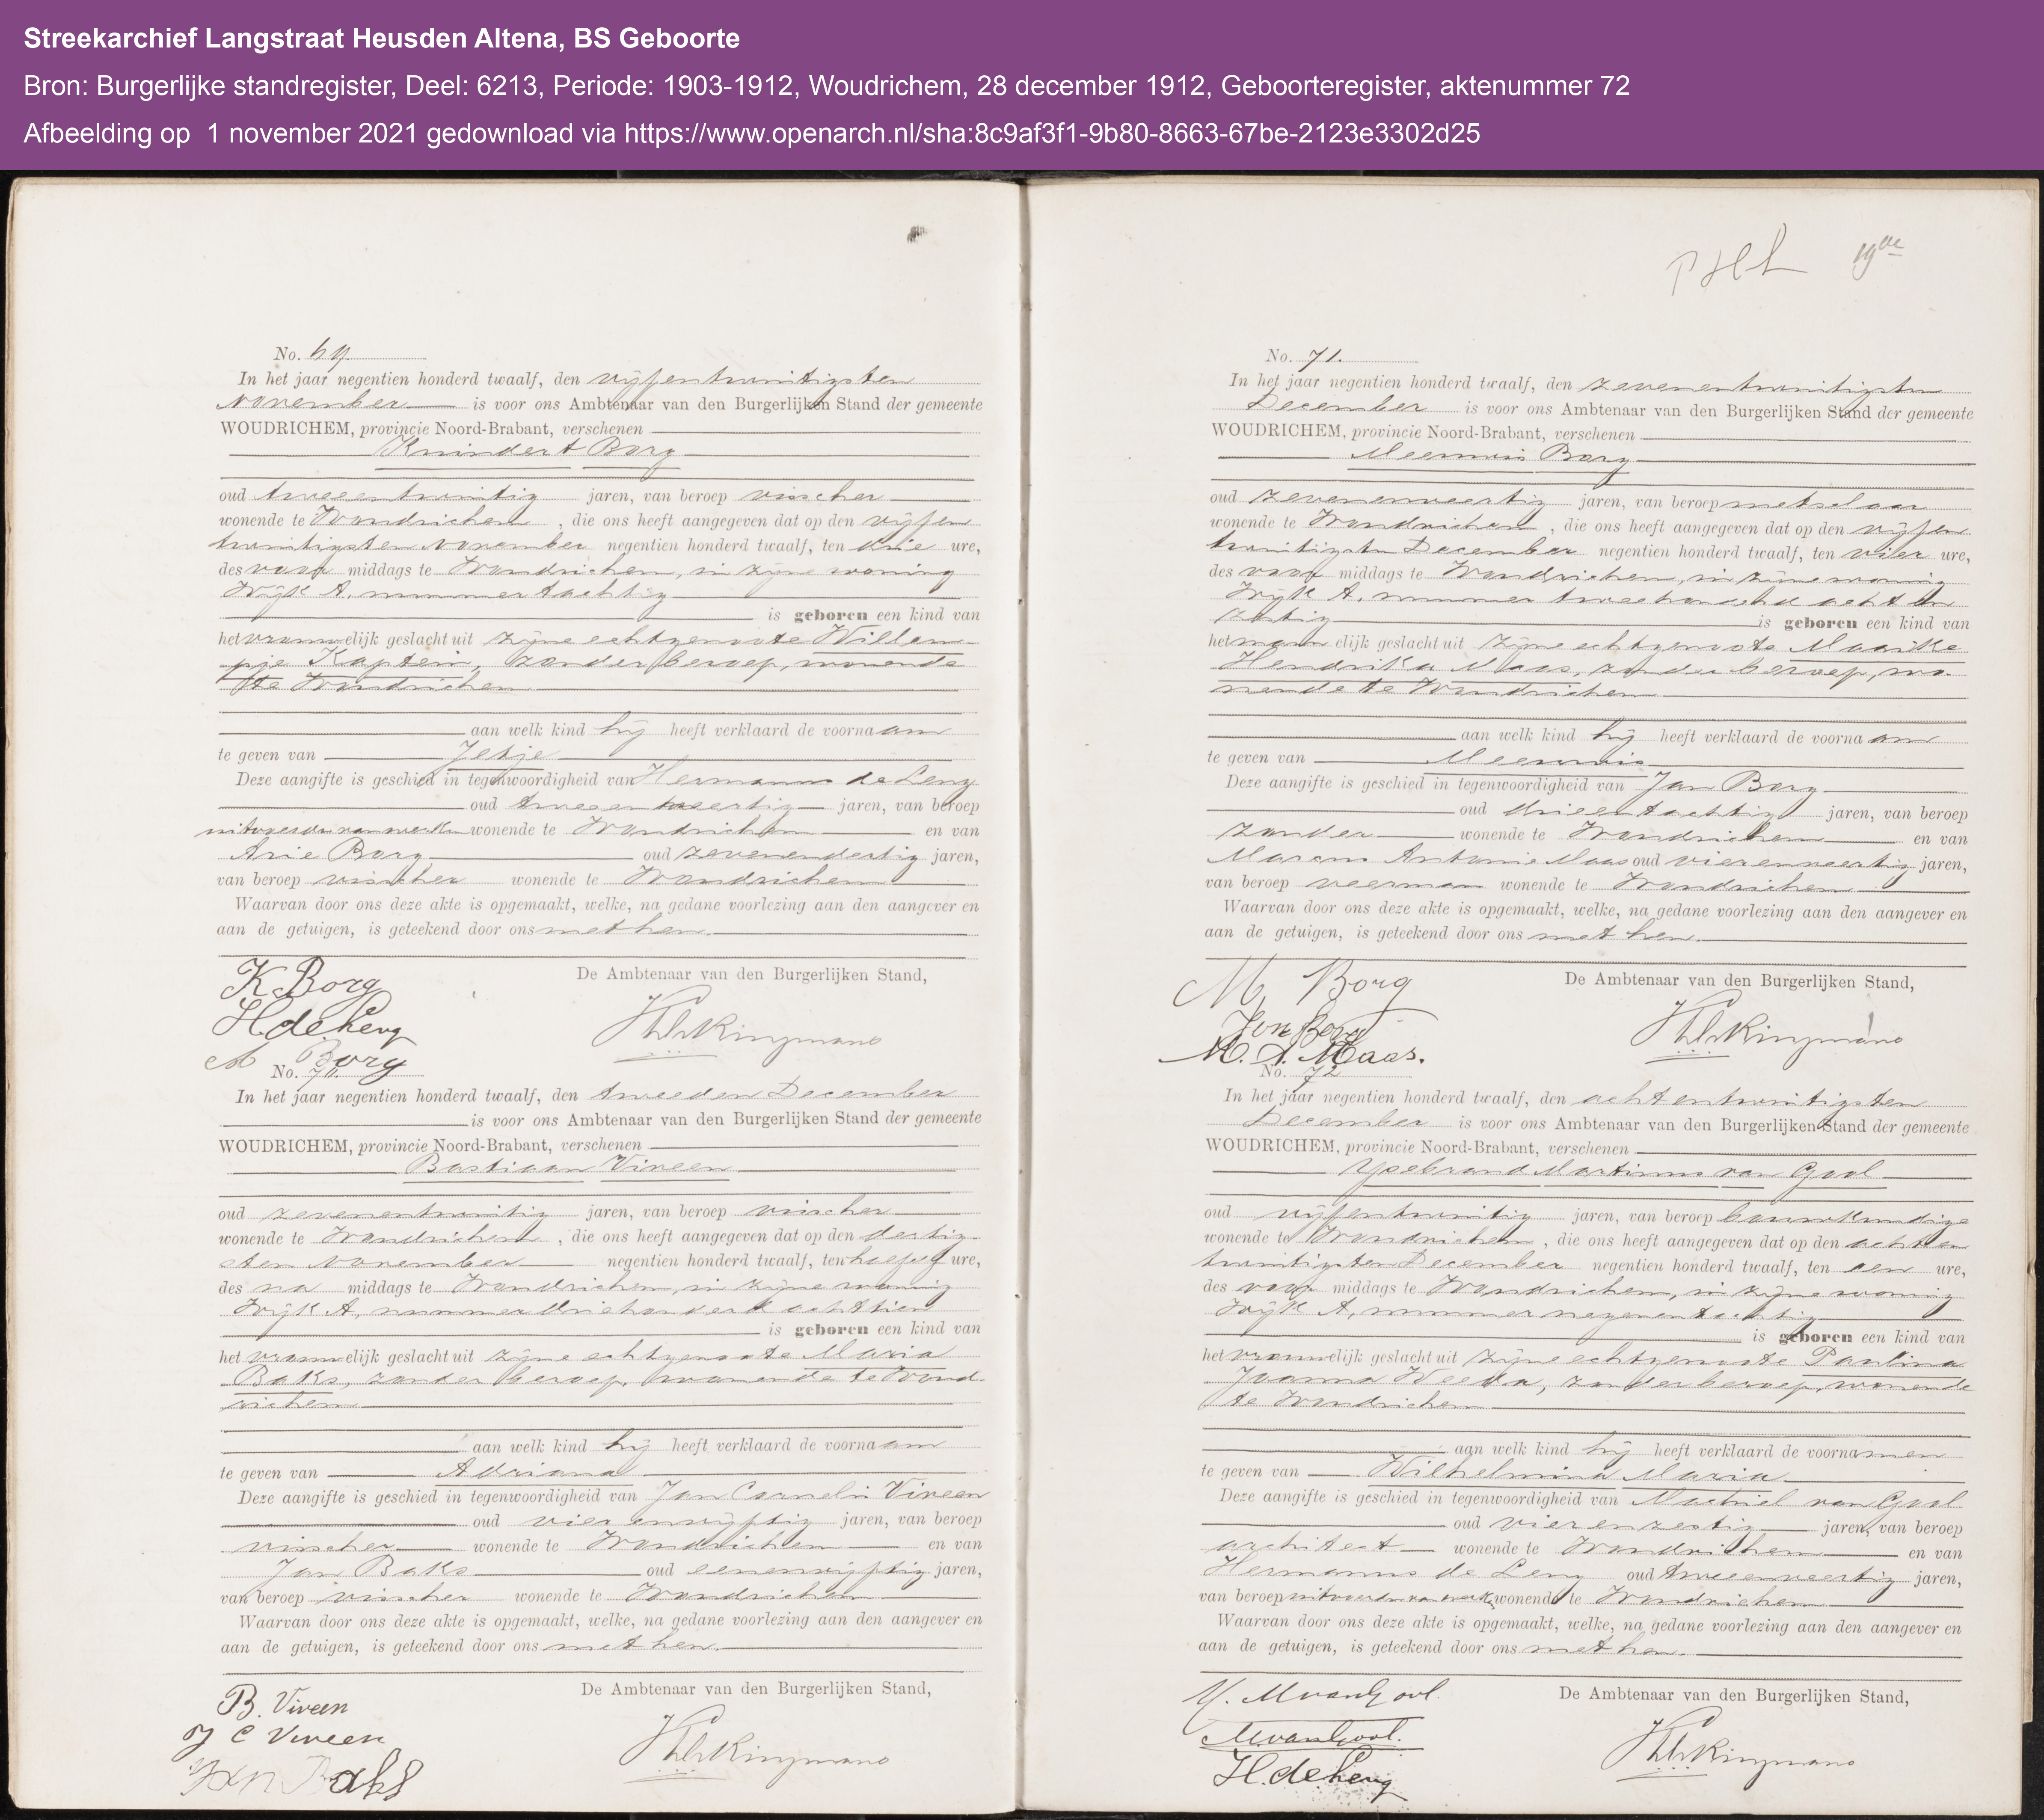 Streekarchief Langstraat Heusden Altena, BS Geboorte
Bron: Burgerlijke standregister, Deel: 6213, Periode: 1903-1912, Woudrichem, 28 december 1912, Geboorteregister, aktenummer 72
Afbeelding op 1 november 2021 gedownload via https://www.openarch.nl/sha:8c9af3f1-9b80-8663-67be-2123e3302d25
No. 69
In het jaar negentien honderd twaalf, den vijfentwintigsten
November is voor ons Ambtenaar van den Burgerlijken Stand der gemeente
WOUDRICHEM, provincie Noord-Brabant, verschenen
Knindert Borg
oud tweeentwintig jaren, van beroep visscher
wonende te Woudrichem, die ons heeft aangegeven dat op den vijfen
twintigsten November negentien honderd twaalf, ten drie ure,
des voor middags te Woudrichem, in zijne woning
Wijk A, nummer tachtig
is geboren een kind van
het vrouwelijk geslacht uit zijne echtgenoote Willem-
pje Kaptein, zonder beroep, wonende
te Woudrichem
aan welk kind hij heeft verklaard de voornaam
te geven van Jetje
Deze aangifte is geschied in tegenwoordigheid van Hermanus de Leng
oud tweeenveertig jaren, van beroep
wonende te Woudrichem en van
Arie Borg oud zevenendertig jaren,
van beroep visscher wonende te Woudrichem
Waarvan door ons deze akte is opgemaakt, welke, na gedane voorlezing aan den aangever en
aan de getuigen, is geteekend door ons met hen.
De Ambtenaar van den Burgerlijken Stand,
K Borg
H. de Leng
Borg
No. 70.
In het jaar negentien honderd twaalf, den tweeden December
is voor ons Ambtenaar van den Burgerlijken Stand der gemeente
WOUDRICHEM, provincie Noord-Brabant, verschenen
Bastiaan Viveen
oud zevenentwintig jaren, van beroep visscher
wonende te Woudrichem, die ons heeft aangegeven dat op den dertig-
sten November negentien honderd twaalf, ten ure,
des na middags te Woudrichem, in zijne woning
Wijk A, nummer driehonderd achttien
is geboren een kind van
het vrouwelijk geslacht uit zijne echtgenoote Maria
Baks, zonder beroep, wonende te Woud-
richem
aan welk kind hij heeft verklaard de voornaam
te geven van Adriana
Deze aangifte is geschied in tegenwoordigheid van Jan Cornelis Viveen
oud vierenvijftig jaren, van beroep
visscher wonende te Woudrichem en van
Jan Baks oud eenenvijftig jaren,
van beroep visscher wonende te Woudrichem
Waarvan door ons deze akte is opgemaakt, welke, na gedane voorlezing aan den aangever en
aan de getuigen, is geteekend door ons met hen.
De Ambtenaar van den Burgerlijken Stand,
B. Viveen
J C Viveen
Jan Baks
19de
No. 71.
In het jaar negentien honderd twaalf, den zevenentwintigsten
December is voor ons Ambtenaar van den Burgerlijken Stand der gemeente
WOUDRICHEM, provincie Noord-Brabant, verschenen
Meeuwis Borg
oud zevenenveertig jaren, van beroep metselaar
wonende te Woudrichem, die ons heeft aangegeven dat op den vijfen
twintigsten December negentien honderd twaalf, ten vier ure,
des voor middags te Woudrichem, in zijne woning
Wijk A, nummer tweehonderd acht en
zestig is geboren een kind van
het mannelijk geslacht uit zijne echtgenoote Maaike
Hendrika Maas, zonder beroep, wo-
nende te Woudrichem
aan welk kind hij heeft verklaard de voornaam
te geven van Meeuwis
Deze aangifte is geschied in tegenwoordigheid van Jan Borg
oud drieentachtig jaren, van beroep
zonder wonende te Woudrichem en van
Marcus Antonie Maas oud vierenveertig jaren,
van beroep veerman wonende te Woudrichem
Waarvan door ons deze akte is opgemaakt, welke, na gedane voorlezing aan den aangever en
aan de getuigen, is geteekend door ons met hen.
De Ambtenaar van den Burgerlijken Stand,
M Borg
Jan Borg
M. A. Maas.
No. 72
In het jaar negentien honderd twaalf, den achtentwintigsten
December is voor ons Ambtenaar van den Burgerlijken Stand der gemeente
WOUDRICHEM, provincie Noord-Brabant, verschenen
Ysebrand Martinus van Gool
oud vijfentwintig jaren, van beroep bouwkundige
wonende te Woudrichem, die ons heeft aangegeven dat op den achten
twintigsten December negentien honderd twaalf, ten een ure,
des voor middags te Woudrichem, in zijne woning
Wijk A, nummer negenentachtig
is geboren een kind van
het vrouwelijk geslacht uit zijne echtgenoote Paulina
Joanna Weeda, zonder beroep, wonende
te Woudrichem
aan welk kind hij heeft verklaard de voornamen
te geven van Wilhelmina Maria
Deze aangifte is geschied in tegenwoordigheid van van Gool
oud vierenzestig jaren, van beroep
architect wonende te Woudrichem en van
Hermanus de Leng oud tweeenveertig jaren,
van beroep wonende te Woudrichem
Waarvan door ons deze akte is opgemaakt, welke, na gedane voorlezing aan den aangever en
aan de getuigen, is geteekend door ons met hen.
De Ambtenaar van den Burgerlijken Stand,
Y. M van Gool.
M. van Gool.
H. de Leng